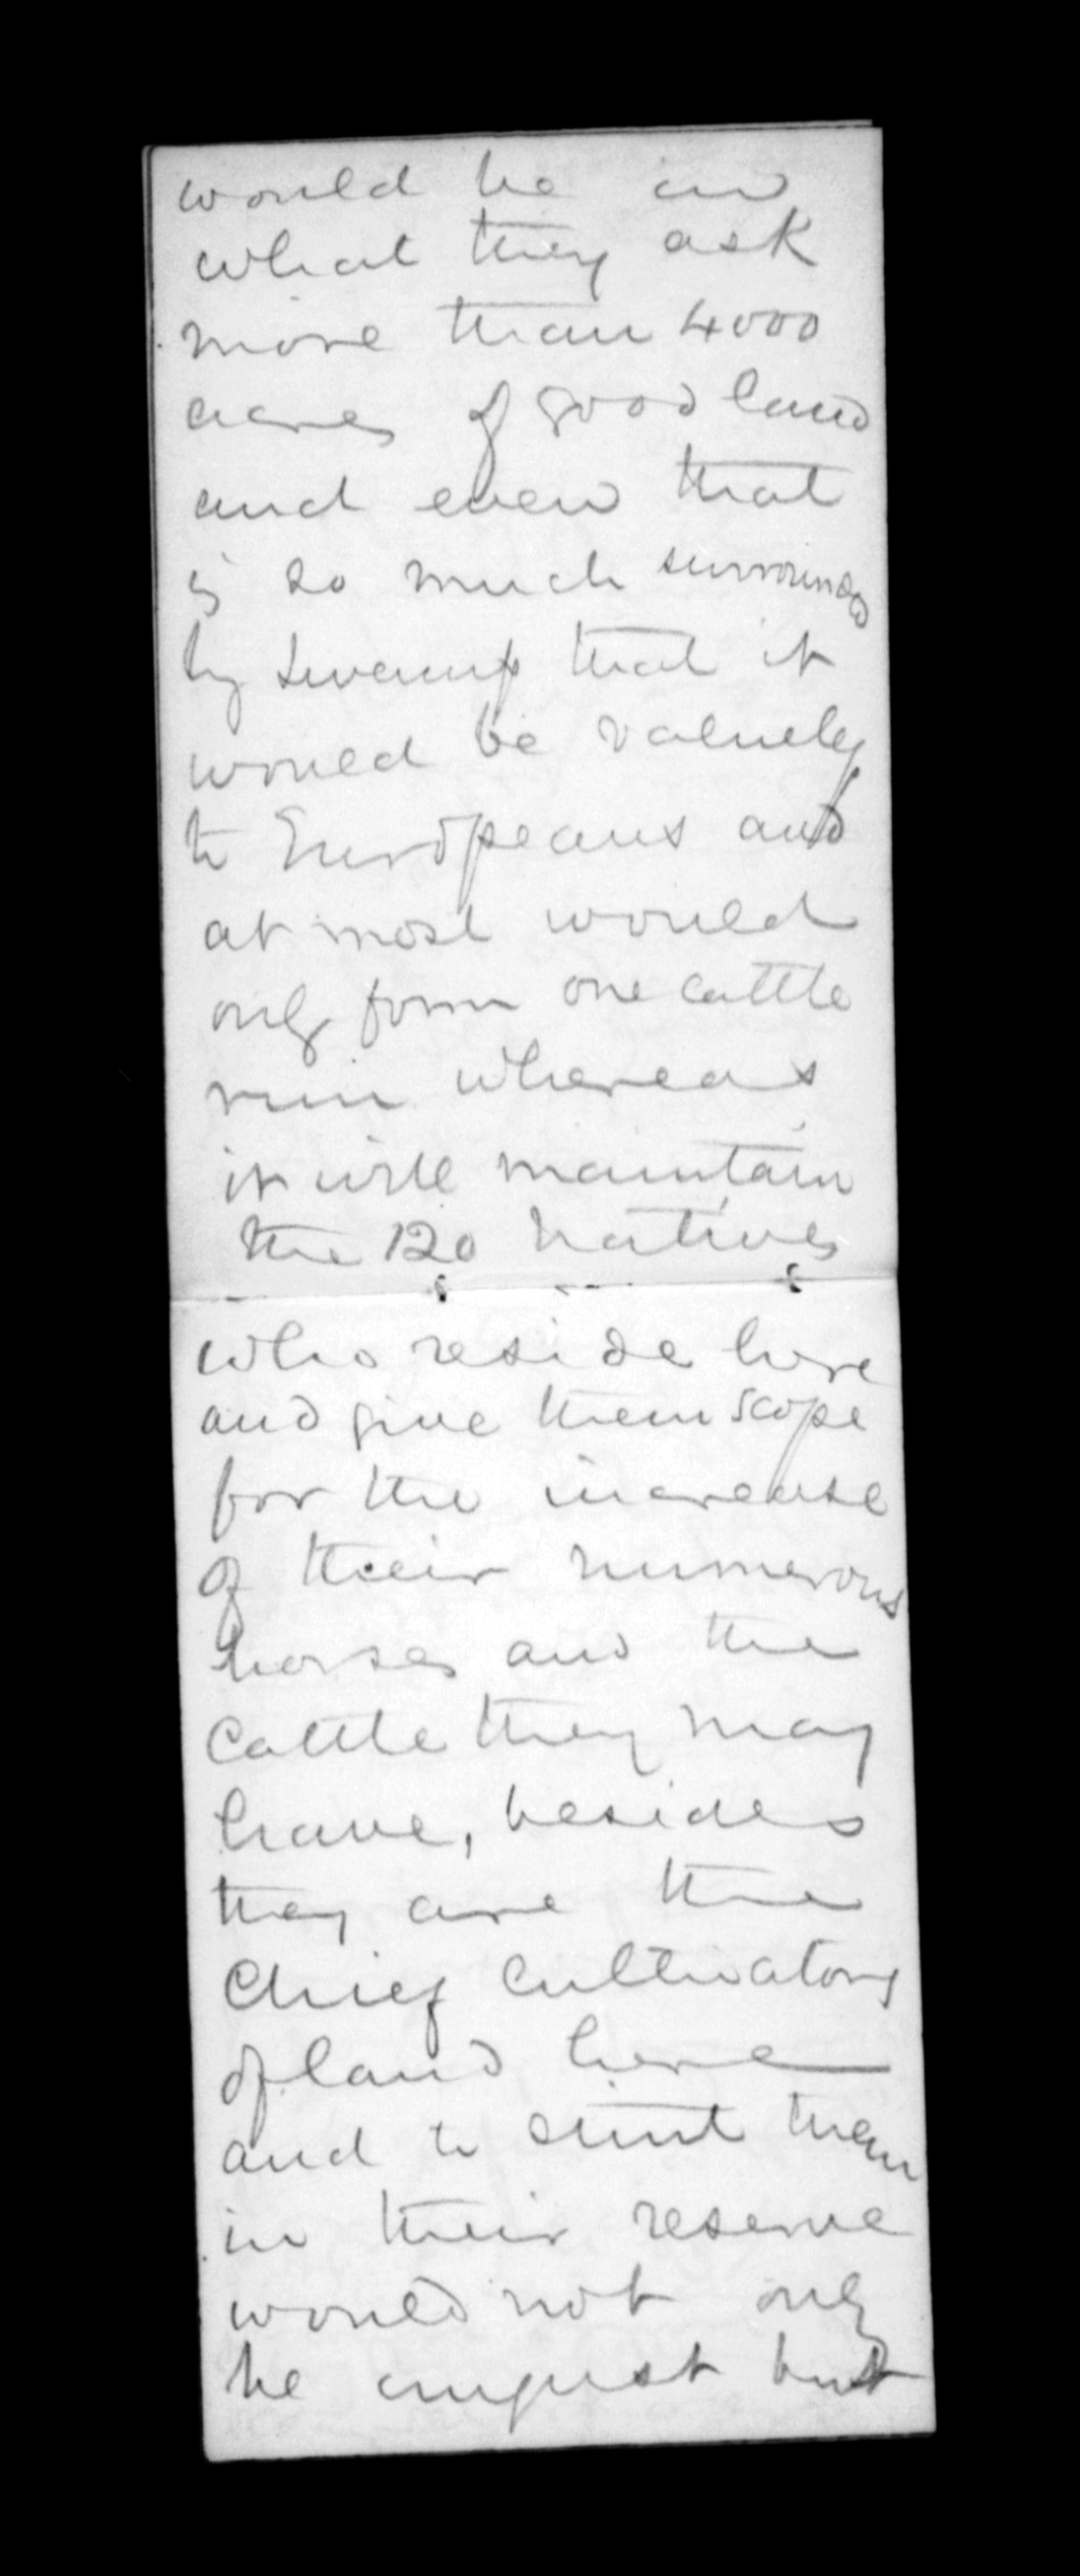 would be in
what they ask
more than 4000
acres of good land
and even that
is so much surrounded
by swamp that it
would be valueless
to Europeans and
at most would
only form one cattle
run whereas
it will maintain
the 120 Natives
who reside here
and give them scope
for the increase
of their numerous
horses and the
cattle they may
have, besides
they are the
chief cultivators
of land here
and to stint them
in their reserve
would not only
be unjust but